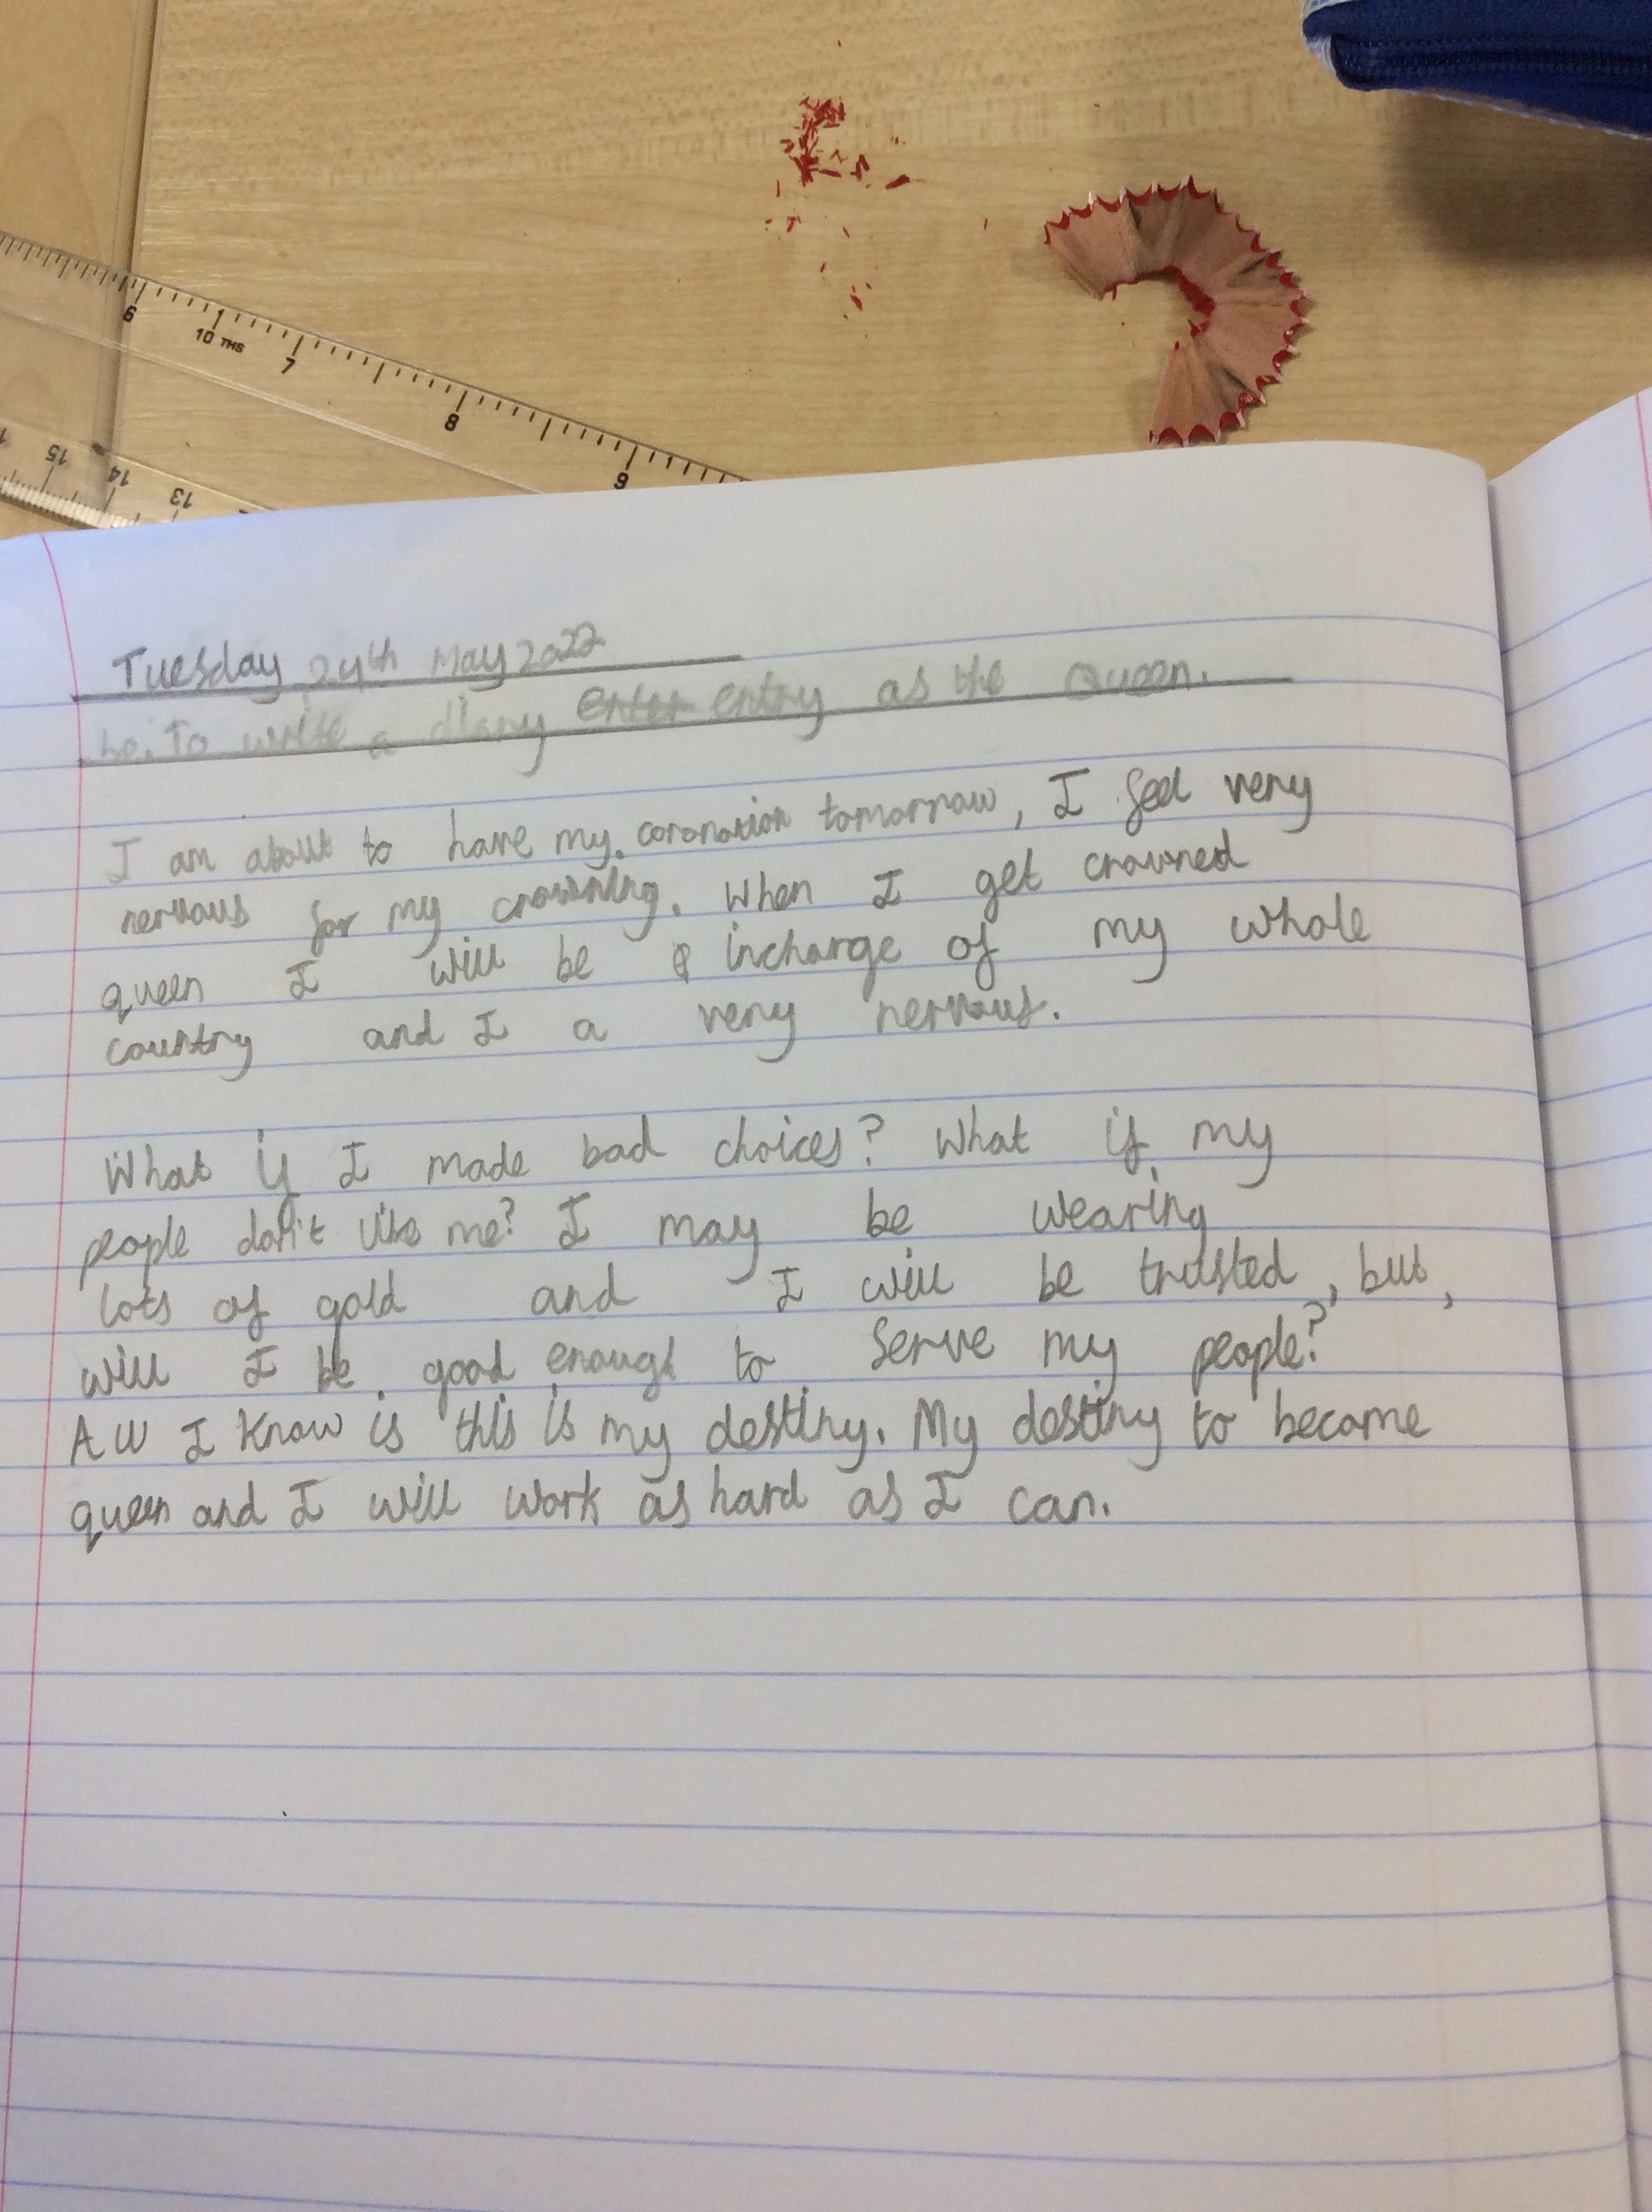 6 10 THS 7 8 9
15 14 13
Tuesday 24th May 2022
Lo: To write a diary enter entry as the Queen.
I am about to have my coronation tomorrow, I feel very
nervous for my crowning. When I get crowned
queen I will be incharge of my whole
country and I a very nervous.
What if I made bad choices? What if my
people don't like me? I may be wearing
lots of gold and I will be trusted, but,
will I be good enough to serve my people?
All I know is this is my destiny. My destiny to become
queen and I will work as hard as I can.